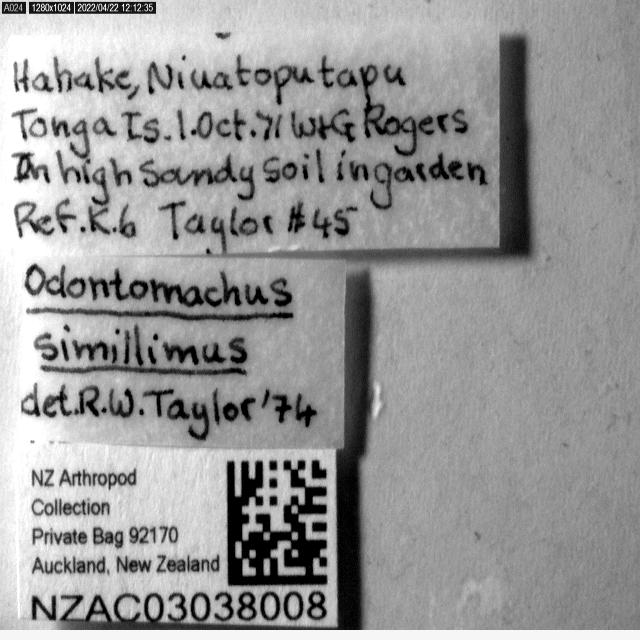 A024 1280x1024 2022/04/22 12:12:35
Hahake, Niuatoputapu
Tonga Is. 1.Oct.71 W+G Rogers
In high sandy soil in garden
Ref. K.6 Taylor #45
Odontomachus
simillimus
det. R.W. Taylor '74
NZ Arthropod
Collection
Private Bag 92170
Auckland, New Zealand
NZAC03038008